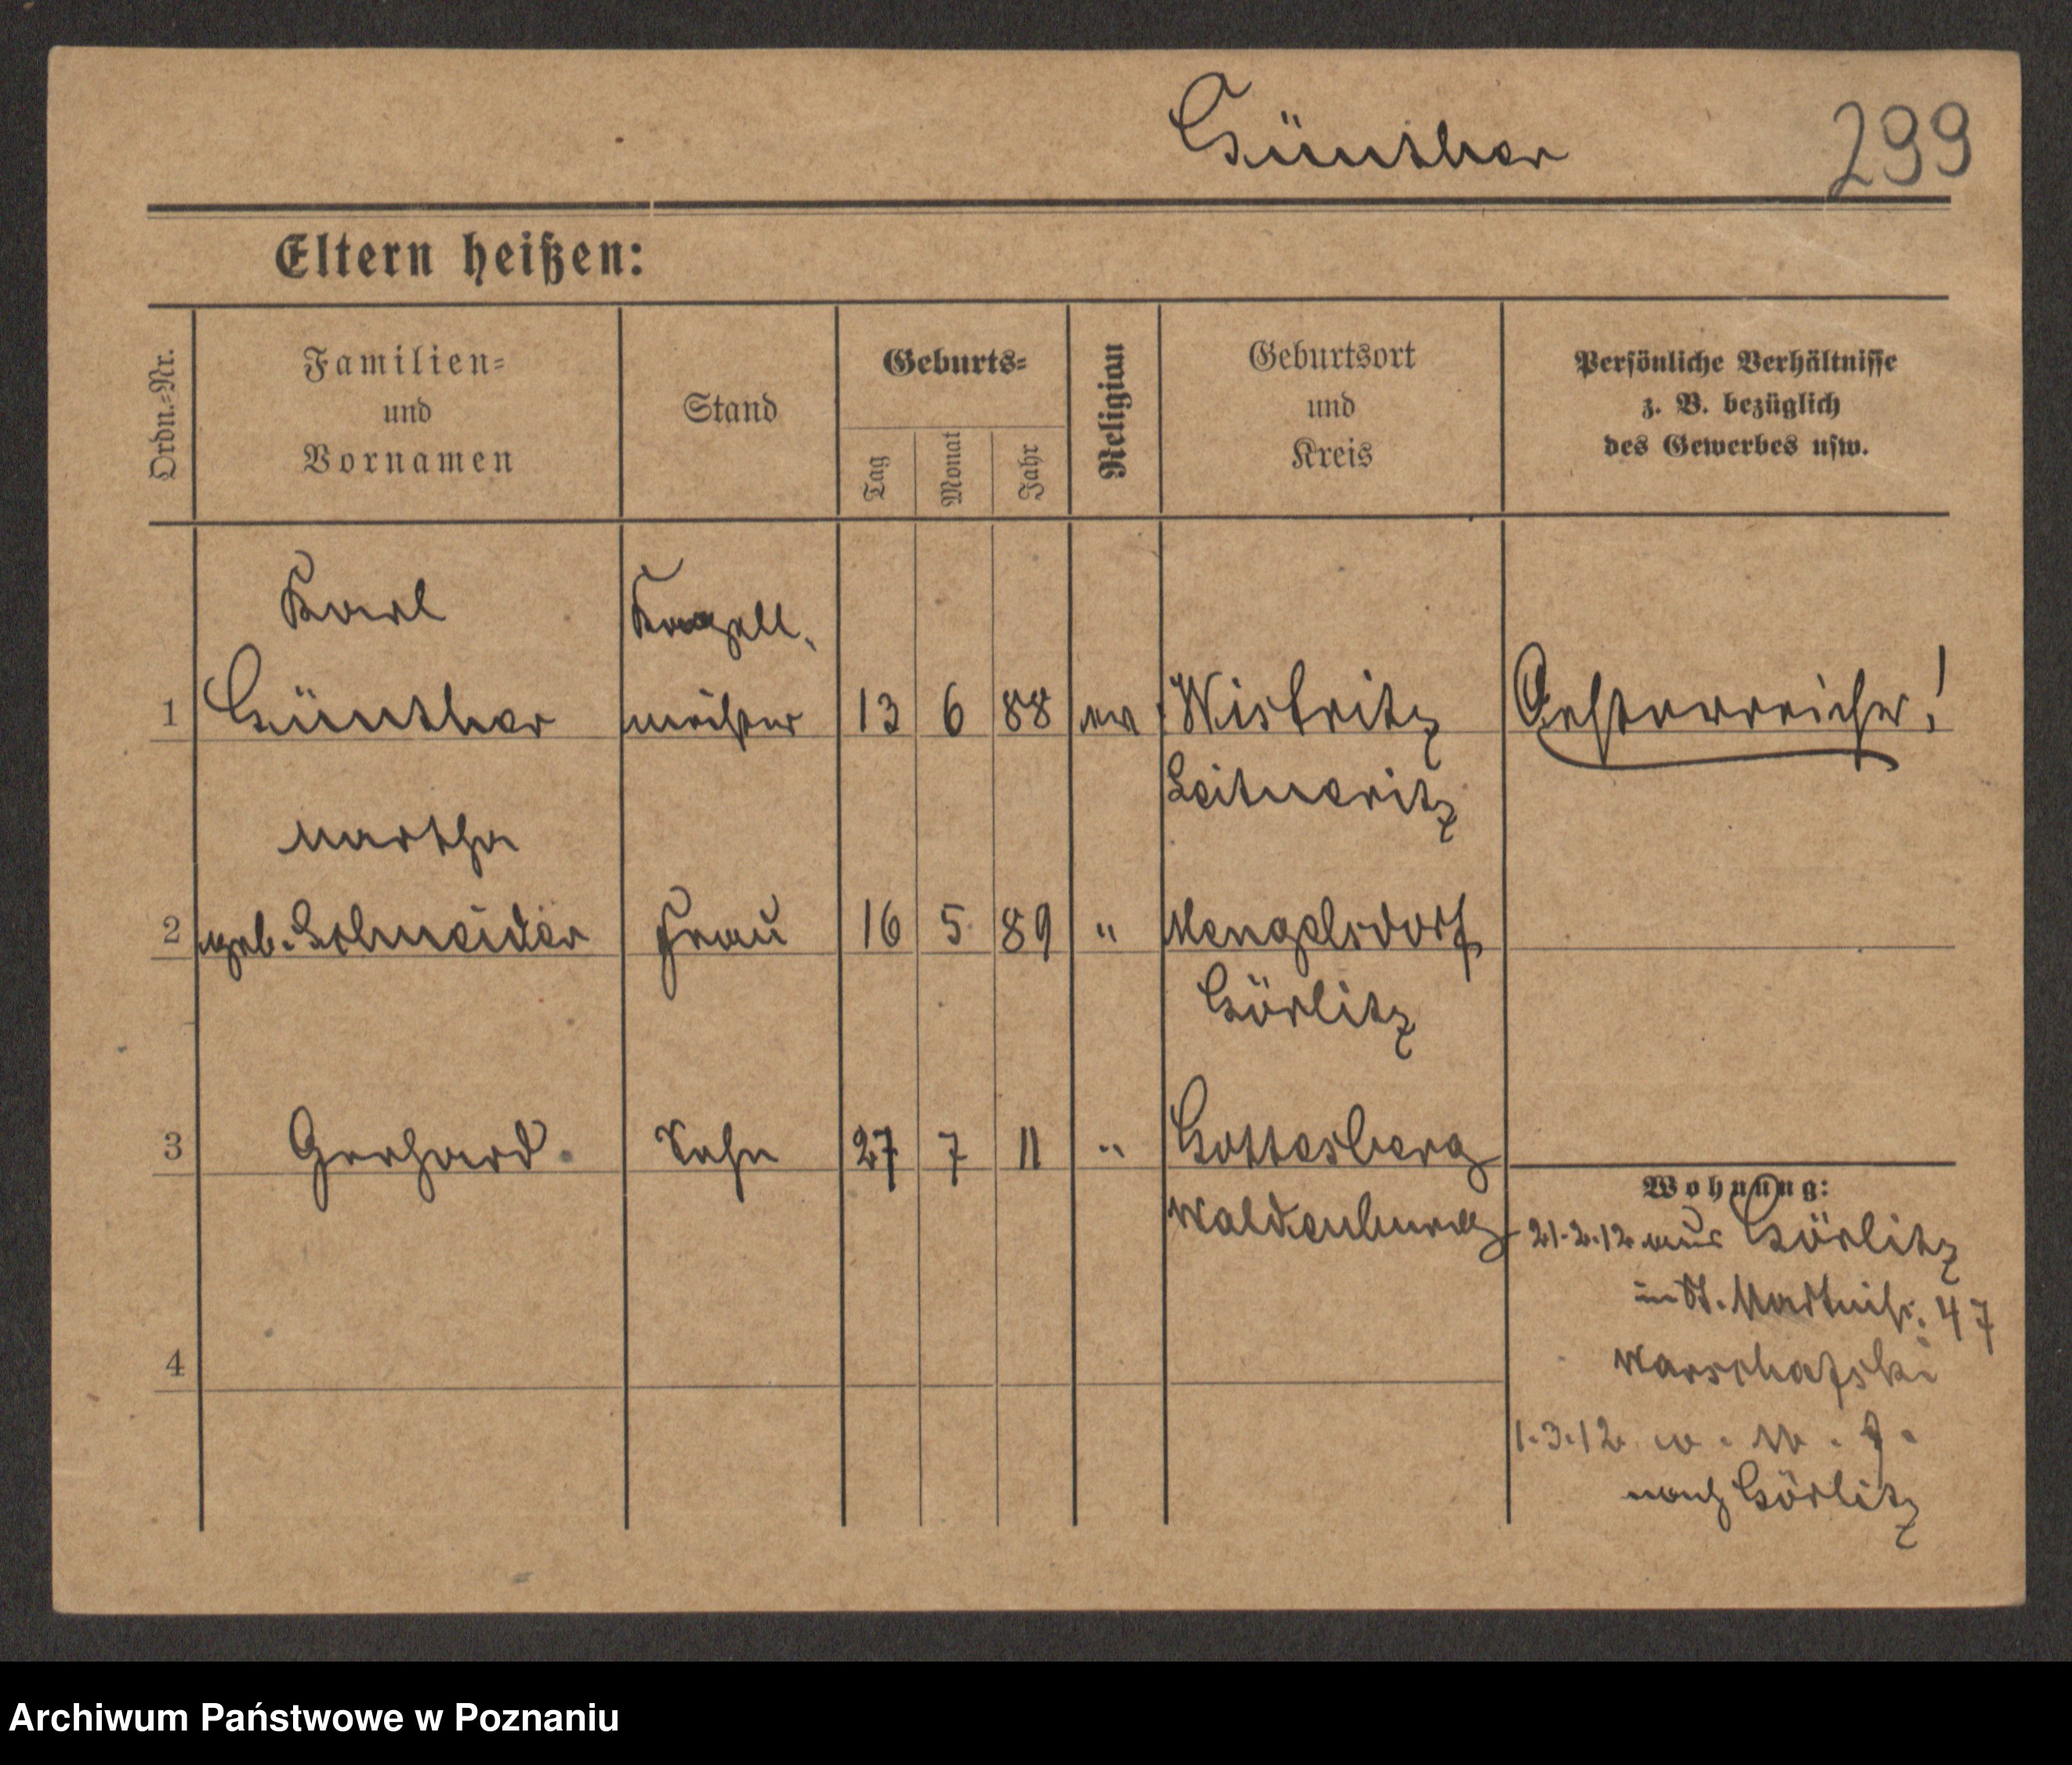 Günther 299
Eltern heißen:
Ordn.-Nr.
Familien-
und
Vornamen
Stand
Geburts-
Tag
Monat
Jahr
Religion
Geburtsort
und
Kreis
Persönliche Verhältnisse
z. B. bezüglich
des Gewerbes usw.
Karl
1 Günther meister 13 6 88 ev Wistritz Oesterreicher!
Leitmeritz
Martha
2 geb. Schneider Frau 16 5 89 " Mengelsdorf
Görlitz
3 Gerhard. Sohn 27 7 11 " Gottesberg
Waldenburg
4
Wohnung:
21.2.12 aus Görlitz
in St. Martinstr. 47
1.3.12
nach Görlitz
Archiwum Państwowe w Poznaniu